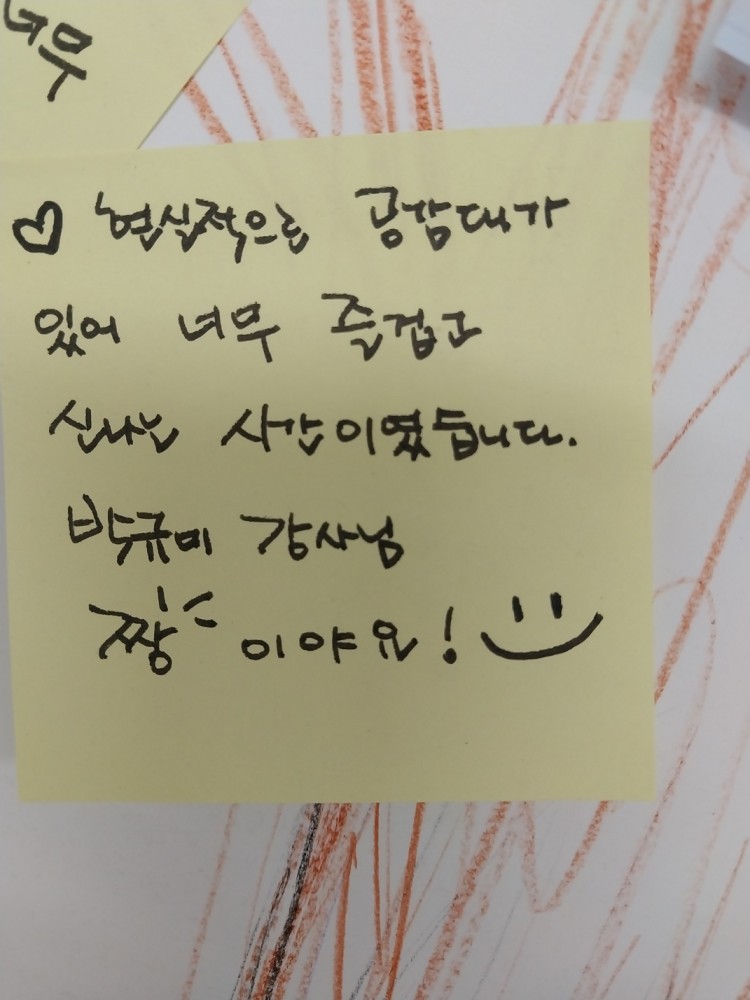 너무
♡ 현실적으로 공감대가
있어 너무 즐겁고
신나는 시간이였습니다.
박규미 강사님
짱이야요!